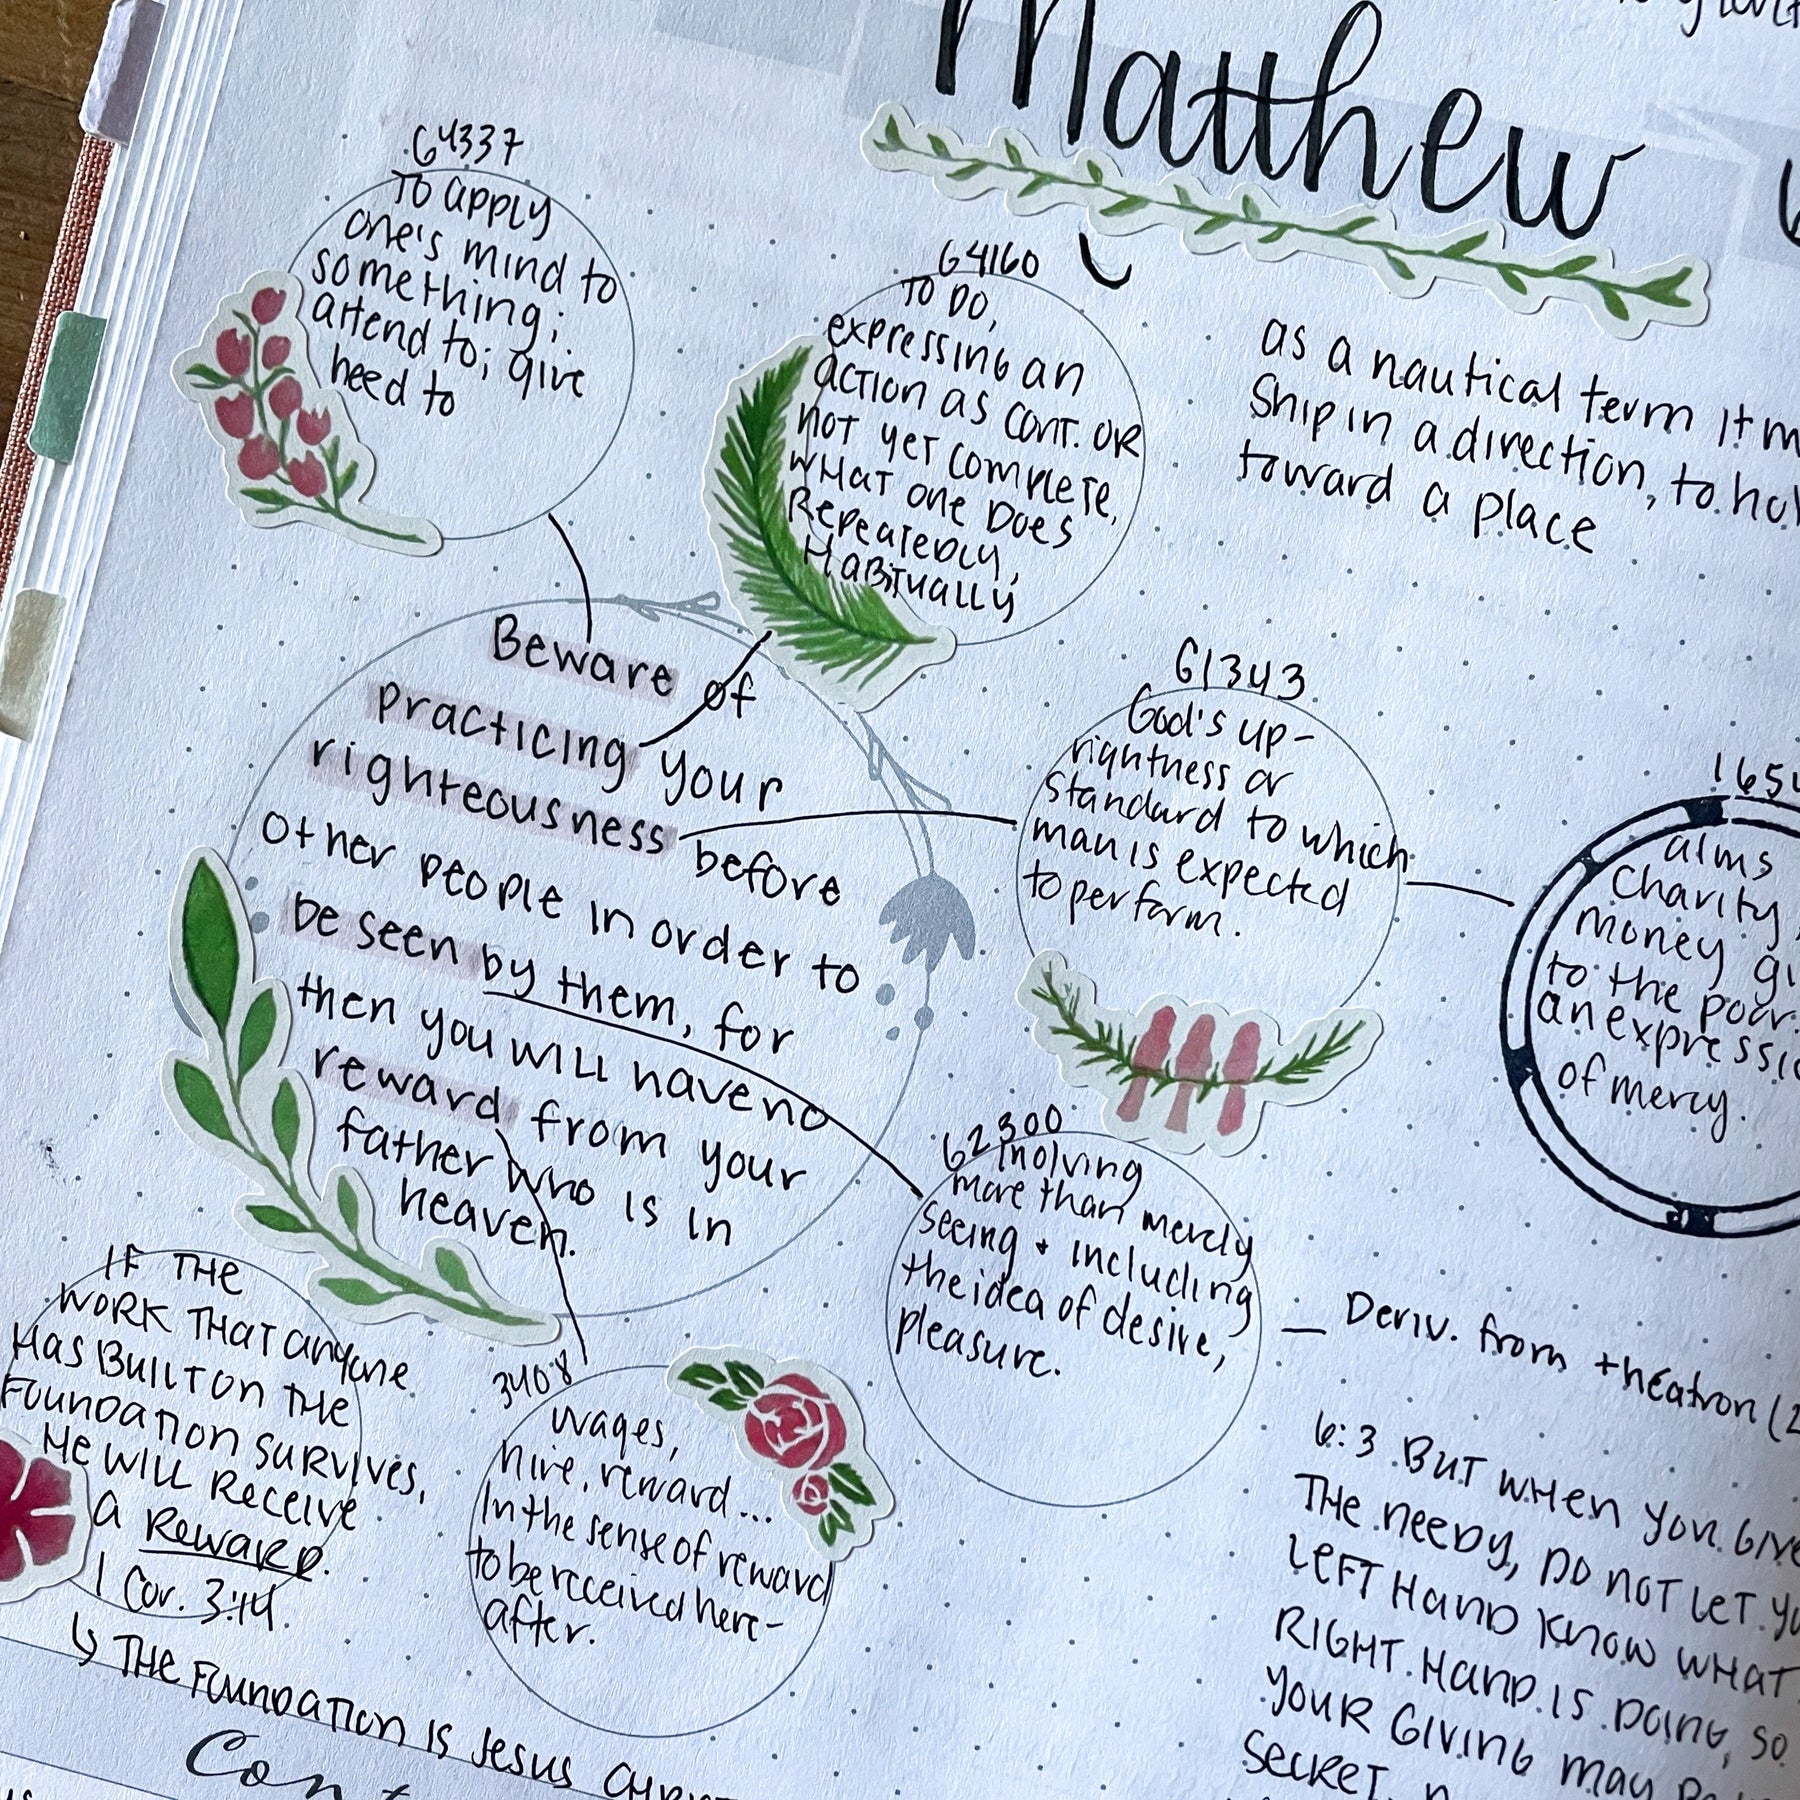 Matthew
G4337
To apply
one's mind to
something;
attend to; give
heed to
G4160
TO DO,
expressing an
action as cont. OR
not yet complete,
WHAT one Does
Repeatedly,
Habitually
as a nautical term it m
Ship in a direction, to hol
toward a place
Beware of
practicing your
righteousness before
other people in order to
be seen by them, for
then you will have no
reward from your
father who is in
heaven.
G1343
God's up-
rightness or
Standard to which
man is expected
to perform.
1654
alms
charity,
money gi
to the poor.
an expressio
of mercy.
G2300
inolving
more than merely
seeing + including
the idea of desire,
pleasure.
Deriv. from theatron (2
IF THE
WORK THAT anyone
Has Built on THE
Foundation survives,
HE WILL Receive
a Reward.
1 Cor. 3:14.
THE Foundation is Jesus CHRIST
3408
wages,
hire, reward...
In the sense of reward
to be received here-
after.
6:3 But when you Give
THE needy, DO not LET yo
LEFT Hand Know WHAT
RIGHT Hand is Doing, so
your Giving may Be
Secret.
Cont